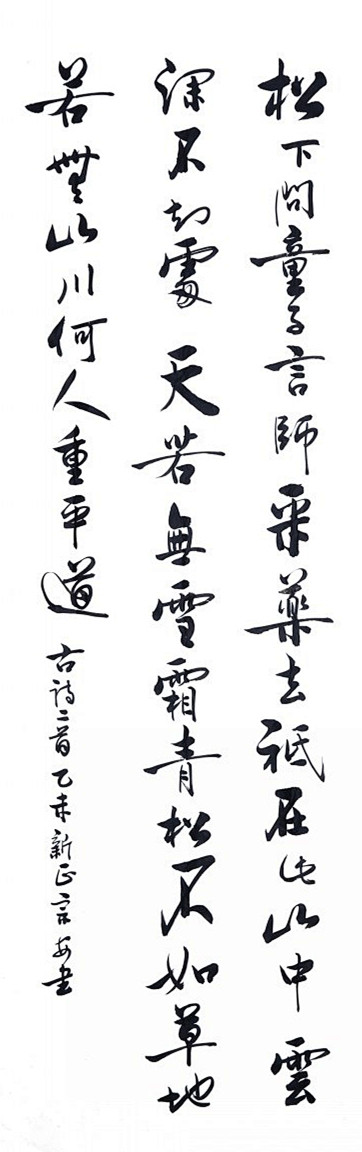 松下問童子言師采藥去祗在此山中雲
深不知處天若無雪霜青松不如草地
若無山川何人重平道古詩二首乙未新正書